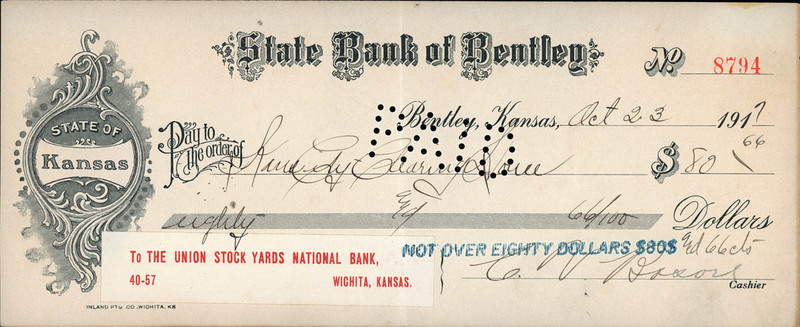 State Bank of Bentley
No 8794
STATE OF
Kansas
Bentley, Kansas, Oct 23 1917
PAID
Pay to
the order of Kans City Clearing House $ 80 66
eighty and 66/100 Dollars
NOT OVER EIGHTY DOLLARS $80$ and 66 cts
To THE UNION STOCK YARDS NATIONAL BANK,
40-57 WICHITA, KANSAS.
Cashier
INLAND PTG CO., WICHITA, KS